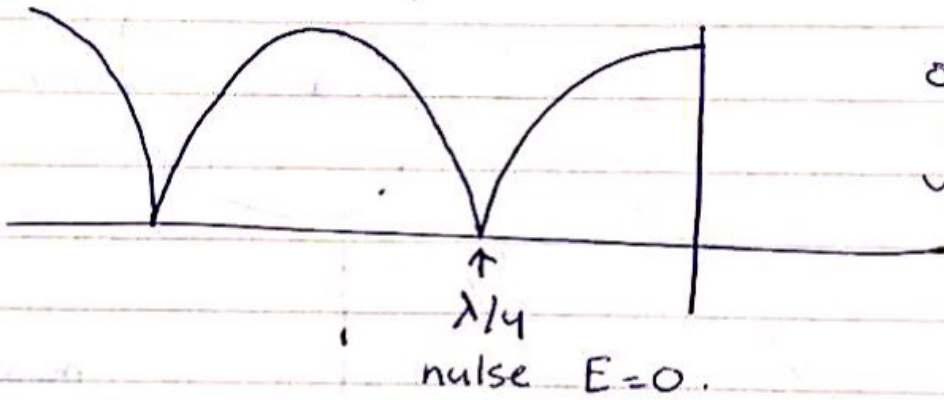 λ/4
nulse E=0.